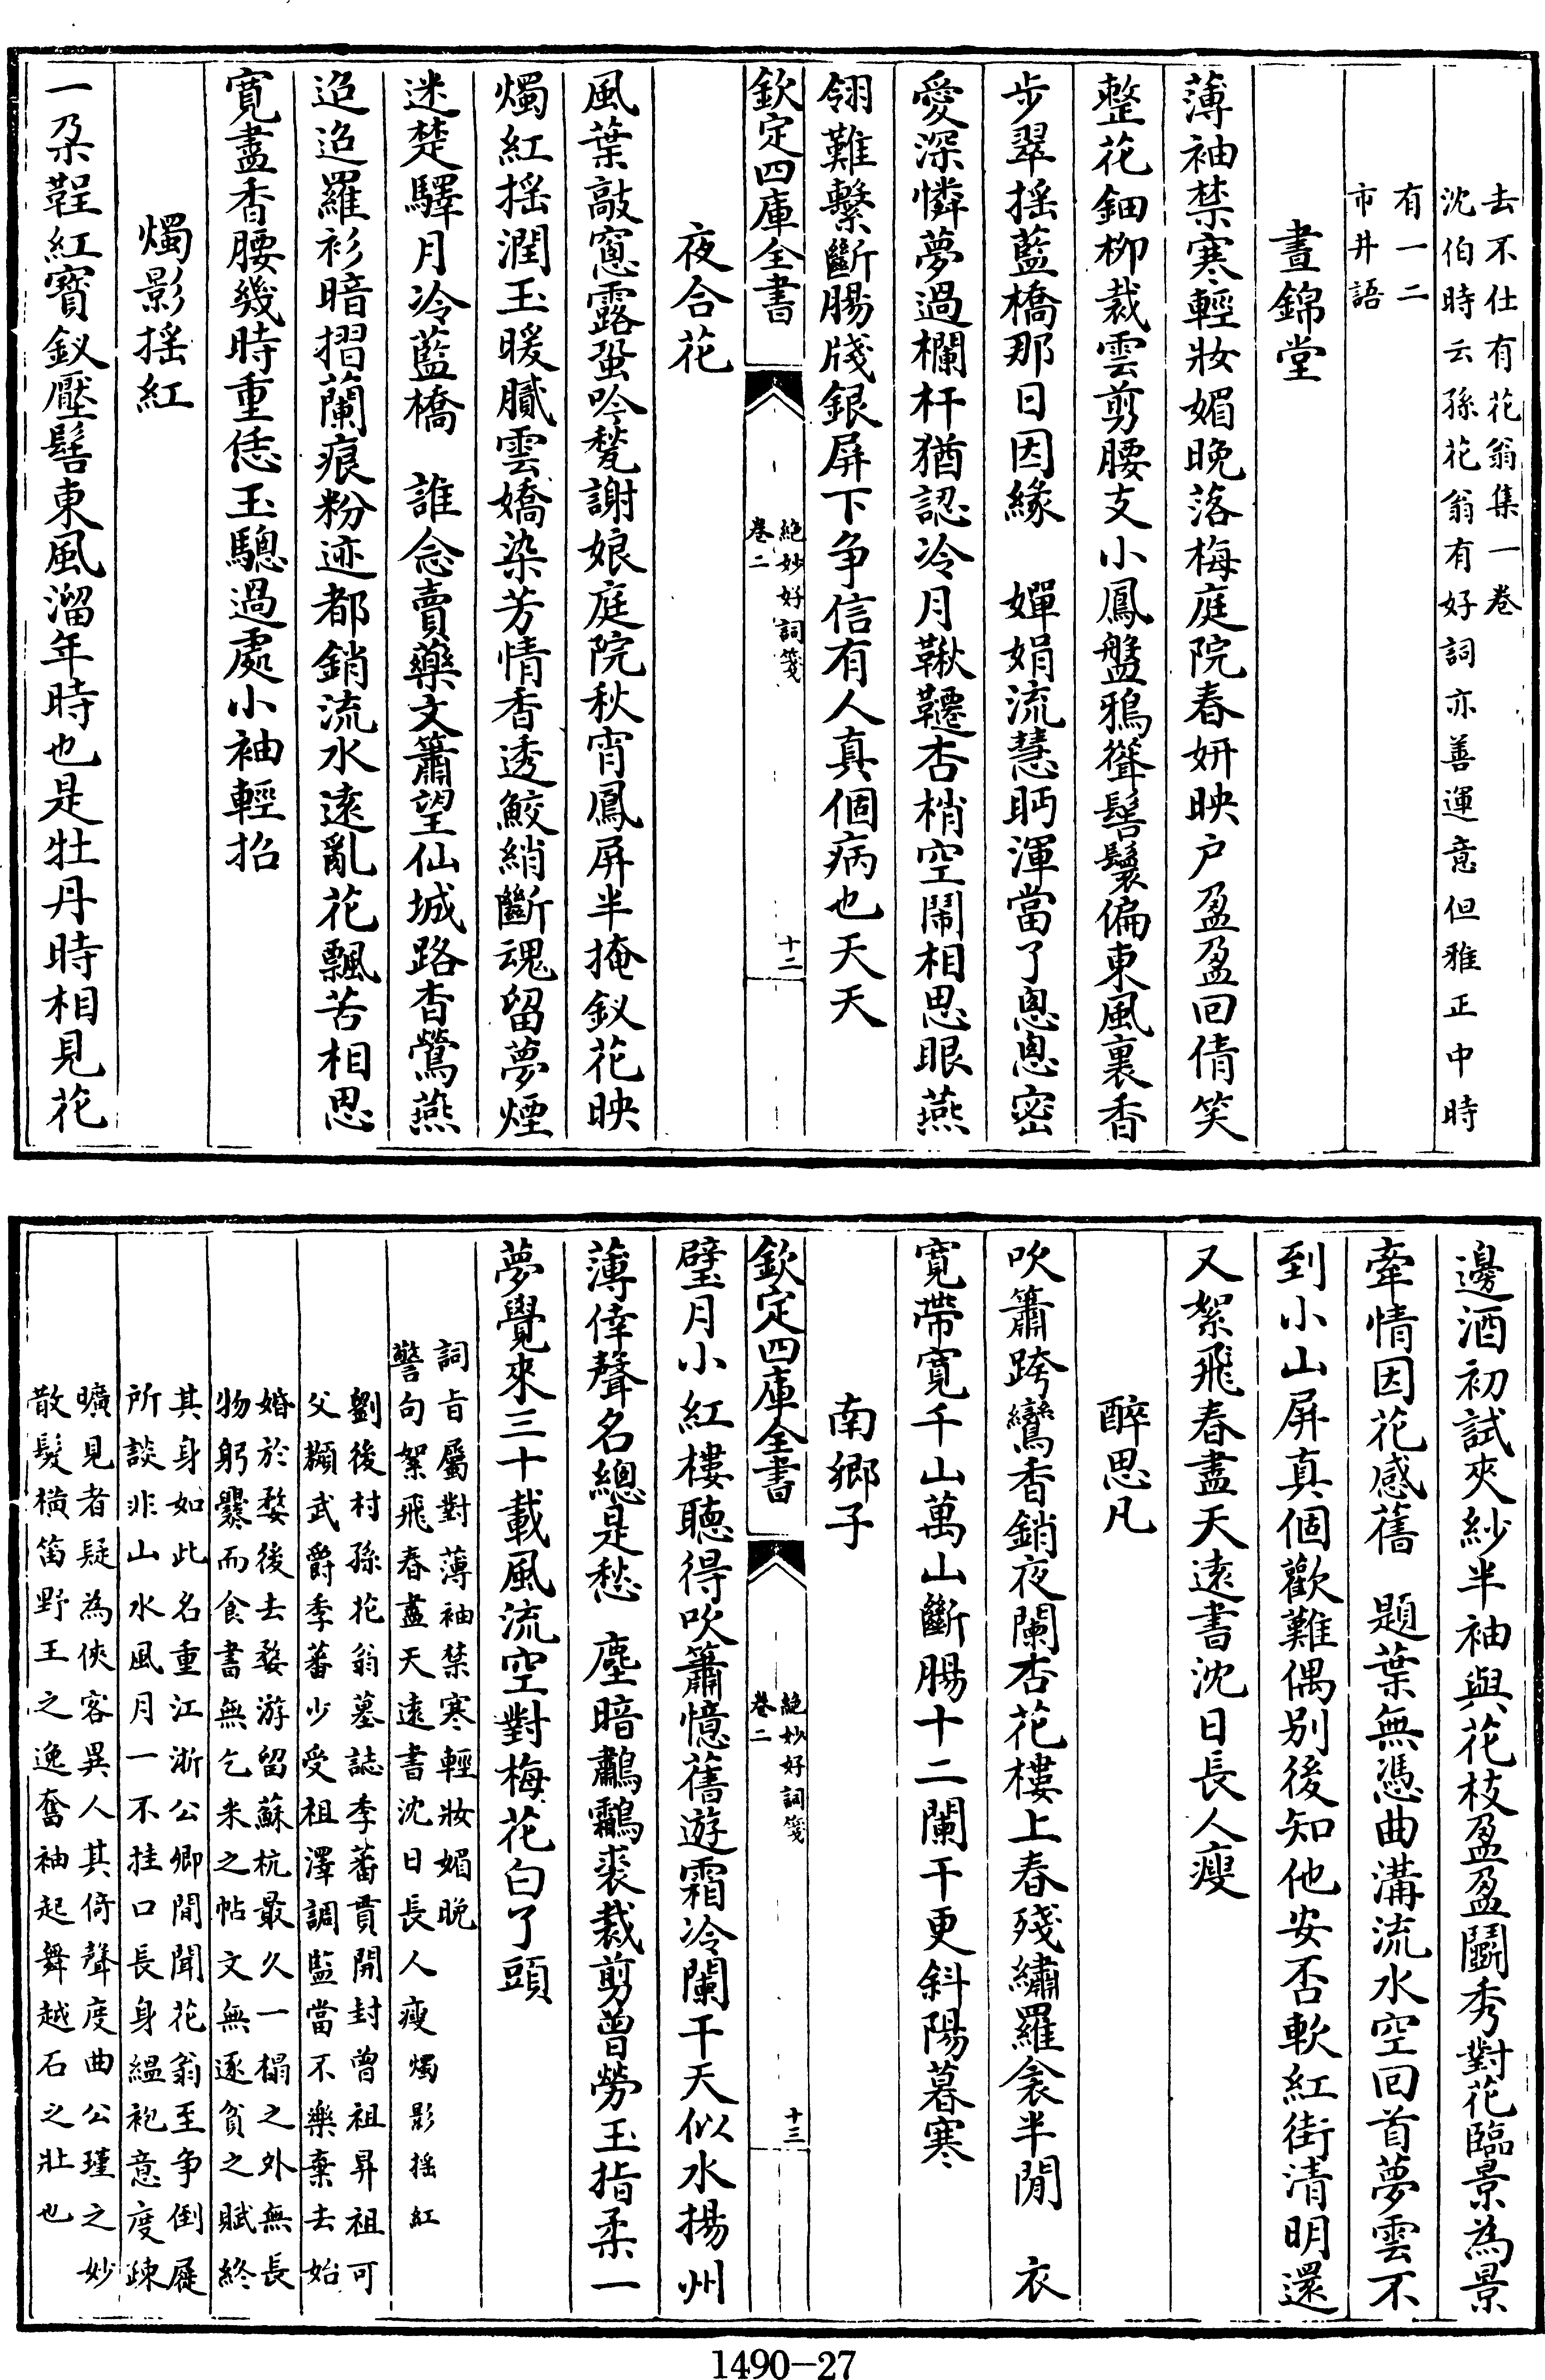 去不仕有花翁集一卷
沈伯時云孫花翁有好詞亦善運意但雅正中時
有一二
市井語
晝錦堂
薄袖禁寒輕妝媚晚落梅庭院春妍映户盈盈回倩笑
整花鈿柳裁雲剪腰支小鳳盤鴉聳髻鬟偏東風裏香
步翠摇藍橋那日因緣　嬋娟流慧眄渾當了悤悤密
愛深憐夢過欄杆猶認冷月鞦韆杏梢空閙相思眼燕
翎難繫斷腸牋銀屏下争信有人真個病也天天
欽定四庫全書
絶妙好詞箋
卷二
十二
夜合花
風葉敲窻露蛩吟甃謝娘庭院秋宵鳳屏半掩釵花映
燭紅摇潤玉暖膩雲嬌染芳情香透鮫綃斷魂留夢煙
迷楚驛月冷藍橋　誰念賣藥文簫望仙城路杳鶯燕
迢迢羅衫暗摺蘭痕粉迹都銷流水逺亂花飄苦相思
寛盡香腰幾時重恁玉驄過處小袖輕招
燭影摇紅
一朶鞓紅寳釵壓髻東風溜年時也是牡丹時相見花
邊酒初試夾紗半袖與花枝盈盈鬭秀對花臨景為景
牽情因花感舊　題葉無憑曲溝流水空回首夢雲不
到小山屏真個歡難偶别後知他安否軟紅街清明還
又絮飛春盡天逺書沈日長人瘦
醉思凡
吹簫跨鸞香銷夜闌杏花樓上春殘繡羅衾半閒　衣
寛帶寛千山萬山斷腸十二闌干更斜陽暮寒
南鄉子
璧月小紅樓聽得吹簫憶舊遊霜冷闌干天似水揚州
欽定四庫全書
絶妙好詞箋
卷二
十三
薄倖聲名總是愁　塵暗鷫鸘裘裁剪曽勞玉指柔一
夢覺來三十載風流空對梅花白了頭
詞旨屬對薄袖禁寒輕妝媚晚
警句絮飛春盡天逺書沈日長人瘦燭影摇紅
劉後村孫花翁墓誌季蕃貫開封曽祖昇祖可
父顯武爵季蕃少受祖澤調監當不樂棄去始
婚於婺後去婺游留蘇杭最久一榻之外無長
物躬爨而食書無乞米之帖文無逐貧之賦終
其身如此名重江浙公卿間聞花翁至争倒屣
所談非山水風月一不挂口長身緼袍意度疎
曠見者疑為俠客異人其倚聲度曲公瑾之妙
散髮横笛野王之逸奮袖起舞越石之壯也
1490-27